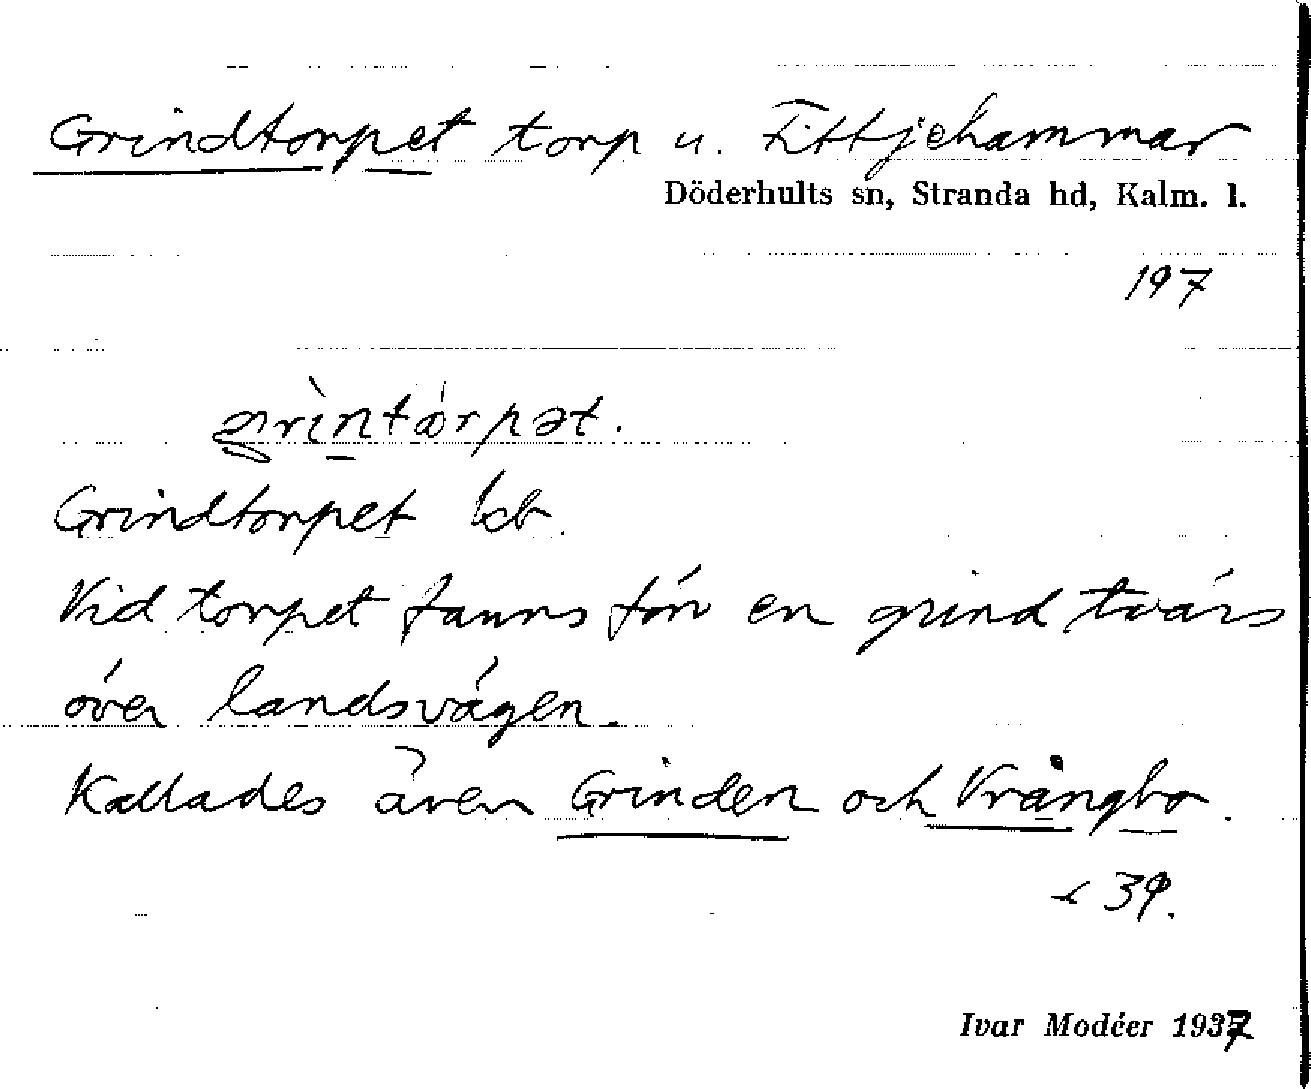 Grindtorpet torp u. Fittjehammar
Döderhults sn, Stranda hd, Kalm. l.
197
grìntórpət.
Grindtorpet kb.
Vid torpet fanns förr en grind tvärs
över landsvägen.
Kallades även Grinden och Vrångbo.
39.
Ivar Modéer 1937